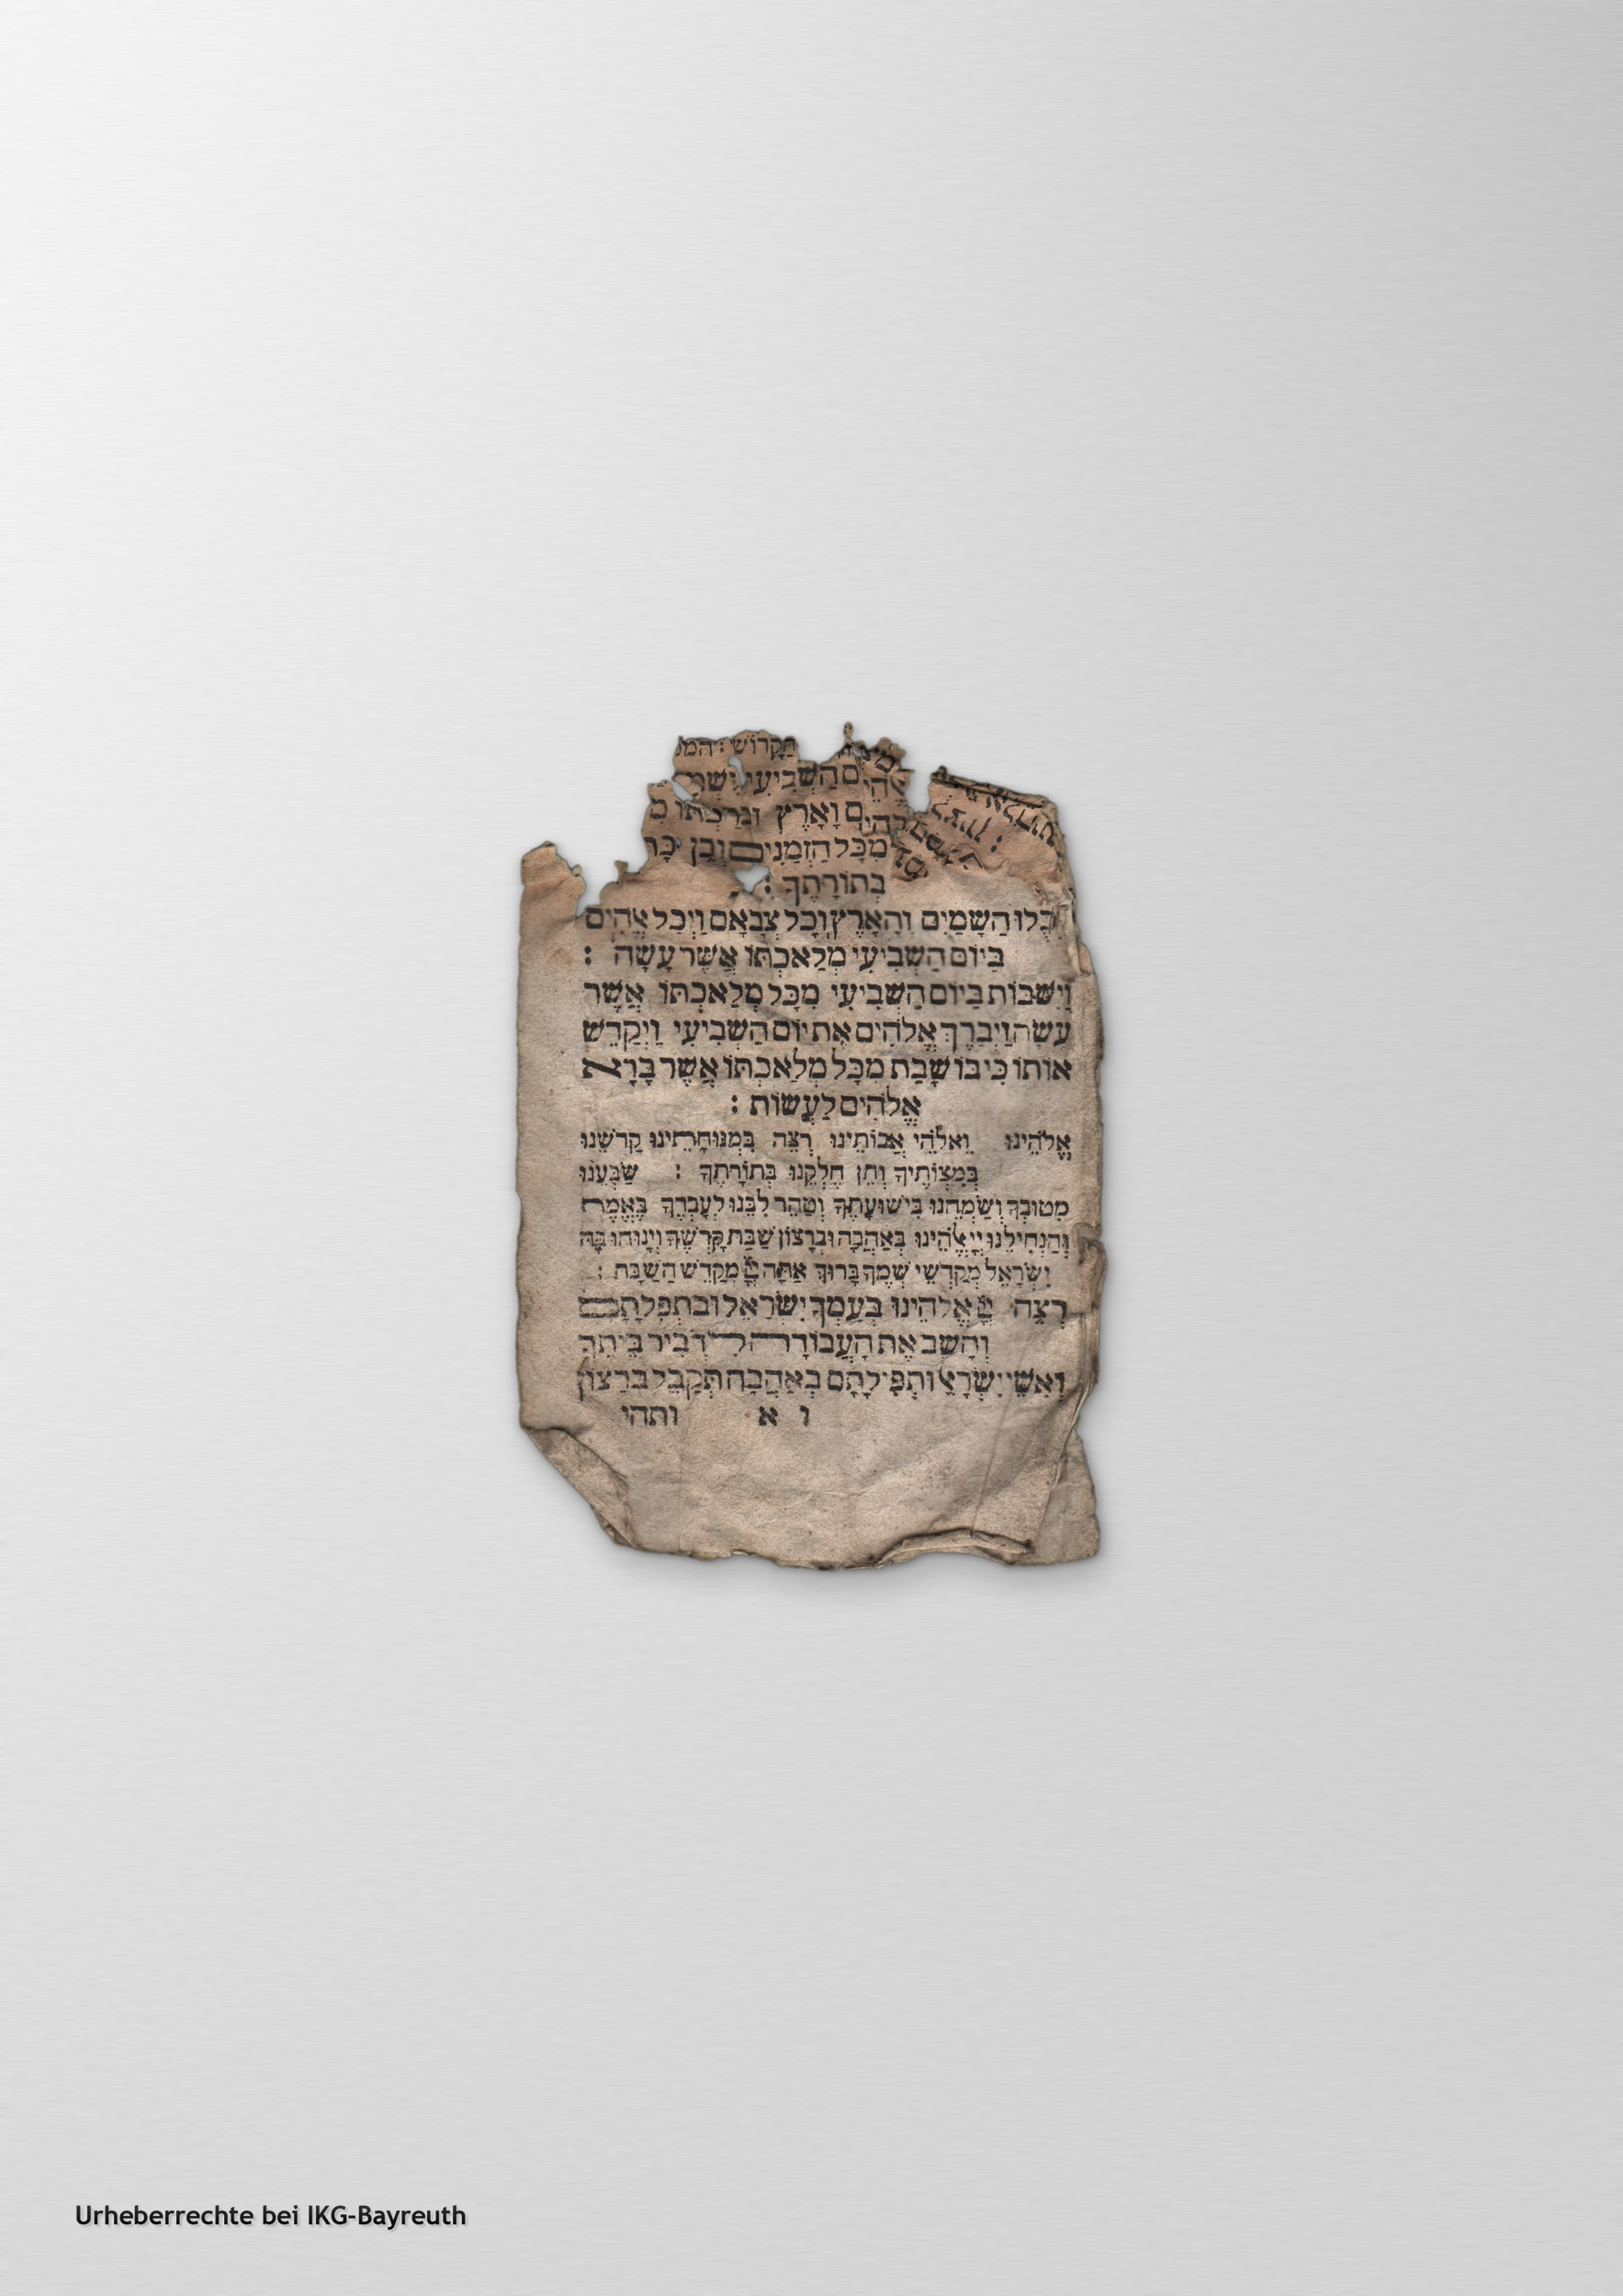 הַקָדוֹשׁ : המ
הַשְׁבִיעִי
וָאָרֶץ
מִכָּל הַזְמַנִים וְכֵן
בְּתוֹרָתֶךָ :
כֻלּוּ הַשָׁמַיִם וְהָאָרֶץ וְכָל צְבָאָם וַיְכַל אֱלֹהִים
בַּיוֹם הַשְׁבִיעִי מְלַאכְתּוֹ אֲשֶׁר עָשָׂה :
וַיִשְׁבּוֹת בַּיוֹם הַשְׁבִיעִי מִכָּל מְלַאכְתּוֹ אֲשֶׁר
עָשָׂה וַיְבָרֶךְ אֱלֹהִים אֶת יוֹם הַשְׁבִיעִי וַיְקַדֵשׁ
אוֹתוֹ כִּי בוֹ שָׁבַת מִכָּל מְלַאכְתּוֹ אֲשֶׁר בָּרָא
אֱלֹהִים לַעֲשׂוֹת :
אֱלֹהֵינוּ וֵאלֹהֵי אֲבוֹתֵינוּ רְצֵה בִּמְנוּחָתֵינוּ קַדְשֵׁנוּ
בְּמִצְוֹתֶיךָ וְתֵן חֶלְקֵנוּ בְּתוֹרָתֶךָ : שַׂבְּעֵנוּ
מִטוּבְךָ וְשַׂמְחֵנוּ בִּישׁוּעָתֶךָ וְטַהֵר לִבֵּנוּ לְעָבְדֶךָ בֶּאֱמֶת
וְהַנְחִילֵנוּ יְיָ אֱלֹהֵינוּ בְּאַהֲבָה וּבְרָצוֹן שַׁבַּת קָדְשֶׁךָ וְיָנוּחוּ בָהּ
יִשְׂרָאֵל מְקַדְשֵׁי שְׁמֶךָ בָּרוּךְ אַתָּה יְיָ מְקַדֵשׁ הַשַׁבָּת :
רְצֵה יְיָ אֱלֹהֵינוּ בְּעַמְךָ יִשְׂרָאֵל וּבִתְפִלָתָם
וְהָשֵׁב אֶת הָעֲבוֹדָה לִדְבִיר בֵּיתֶךָ
וְאִשֵׁי יִשְׂרָאֵל וּתְפִילָתָם בְּאַהֲבָה תְּקַבֵּל בְּרָצוֹן
ו א ותהי
Urheberrechte bei IKG-Bayreuth